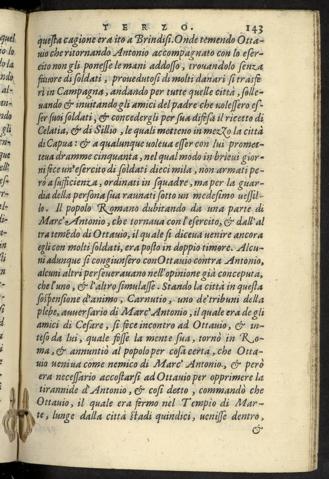 TERZO. 143
questa cagione era ito a Brindisi. Onde temendo Otta-
uio che ritornando Antonio accompagnato con lo eser-
cito non gli ponesse le mani addosso, trouandolo senza
fauore di soldati, prouedutosi di molti danari si trasfe
rì in Campagna, andando per tutte quelle città, solle-
uando & inuitando gli amici del padre che volessero es-
ser suoi soldati, & concedergli per sua difesa il ricetto di
Celatia, & di Sillio, le quali metteno in mezzo la città
di Capua: & a qualunque voleua esser con lui promet-
teua dramme cinquanta, nel qual modo in brieui gior-
ni fece un'esercito di soldati dieci mila, non armati pe-
rò a sufficienza, ordinati in squadre, ma per la guar-
dia della persona sua raunati sotto un medesimo uessil-
lo. Il popolo Romano dubitando da una parte di
Marc'Antonio, che tornaua con l'esercito, & dall'al
tra temēdo di Ottauio, il quale si diceua venire ancora
egli con molti soldati, era posto in doppio timore. Alcu-
ni adunque si congiunsero con Ottauio contra Antonio,
alcuni altri perseuerauano nell'opinione già conceputa,
che l'uno, & l'altro simulasse. Stando la città in questa
sospensione d'animo, Carnutio, uno de' tribuni della
plebe, auuersario di Marc' Antonio, il quale era de gli
amici di Cesare, si fece incontro ad Ottauio, & in-
teso da lui, quale fosse la mente sua, tornò in Ro-
ma, & annuntiò al popolo per cosa certa, che Otta-
uio veniua come nemico di Marc' Antonio, & però
era necessario accostarsi ad Ottauio per opprimere la
tirannide d'Antonio, & così detto, commandò che
Ottauio, il quale era fermo nel Tempio di Mar-
te, lunge dalla città stadi quindici, venisse dentro,
&